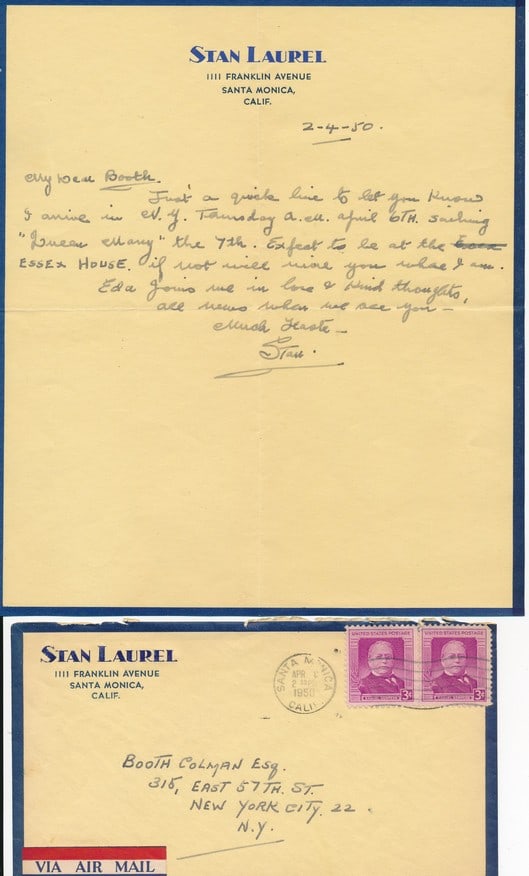 STAN LAUREL
1111 FRANKLIN AVENUE
SANTA MONICA,
CALIF.
2-4-50.
My Dear Booth.
Just a quick line to let you know
I arrive in N.Y. Thursday a.m. april 6TH. sailing
"Queen Mary" the 7th. Expect to be at the
ESSEX HOUSE. if not will wire you where I am.
Eda Joins me in love & kind thoughts,
all news when we see you —
Much Haste —
Stan.
STAN LAUREL
1111 FRANKLIN AVENUE
SANTA MONICA,
CALIF.
SANTA MONICA
APR
1950
CALIF.
UNITED STATES POSTAGE
3¢
UNITED STATES POSTAGE
3¢
BOOTH COLMAN ESQ.
315, EAST 57TH. ST.
NEW YORK CITY. 22.
N.Y.
VIA AIR MAIL